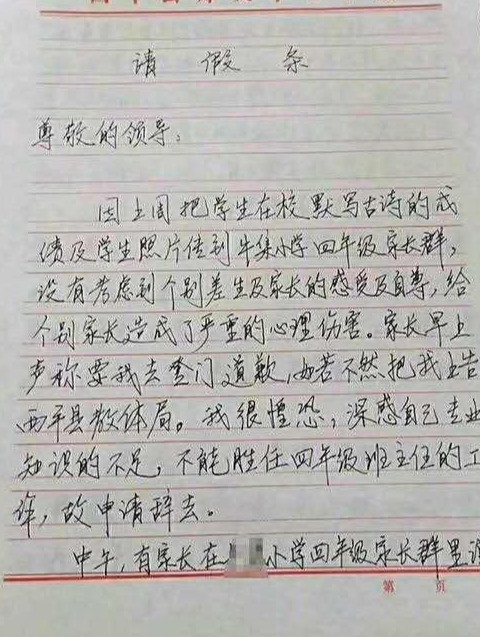 请假条
尊敬的领导:
因上周把学生在校默写古诗的成
绩及学生照片传到牛集小学四年级家长群,
没有考虑到个别差生及家长的感受及自尊,给
个别家长造成了严重的心理伤害。家长早上
声称要我去登门道歉,如若不然把我上告
西平县教体局。我很惶恐,深感自己专业
知识的不足,不能胜任四年级班主任的工
作,故申请辞去。
中午,有家长在小学四年级家长群里
第 页